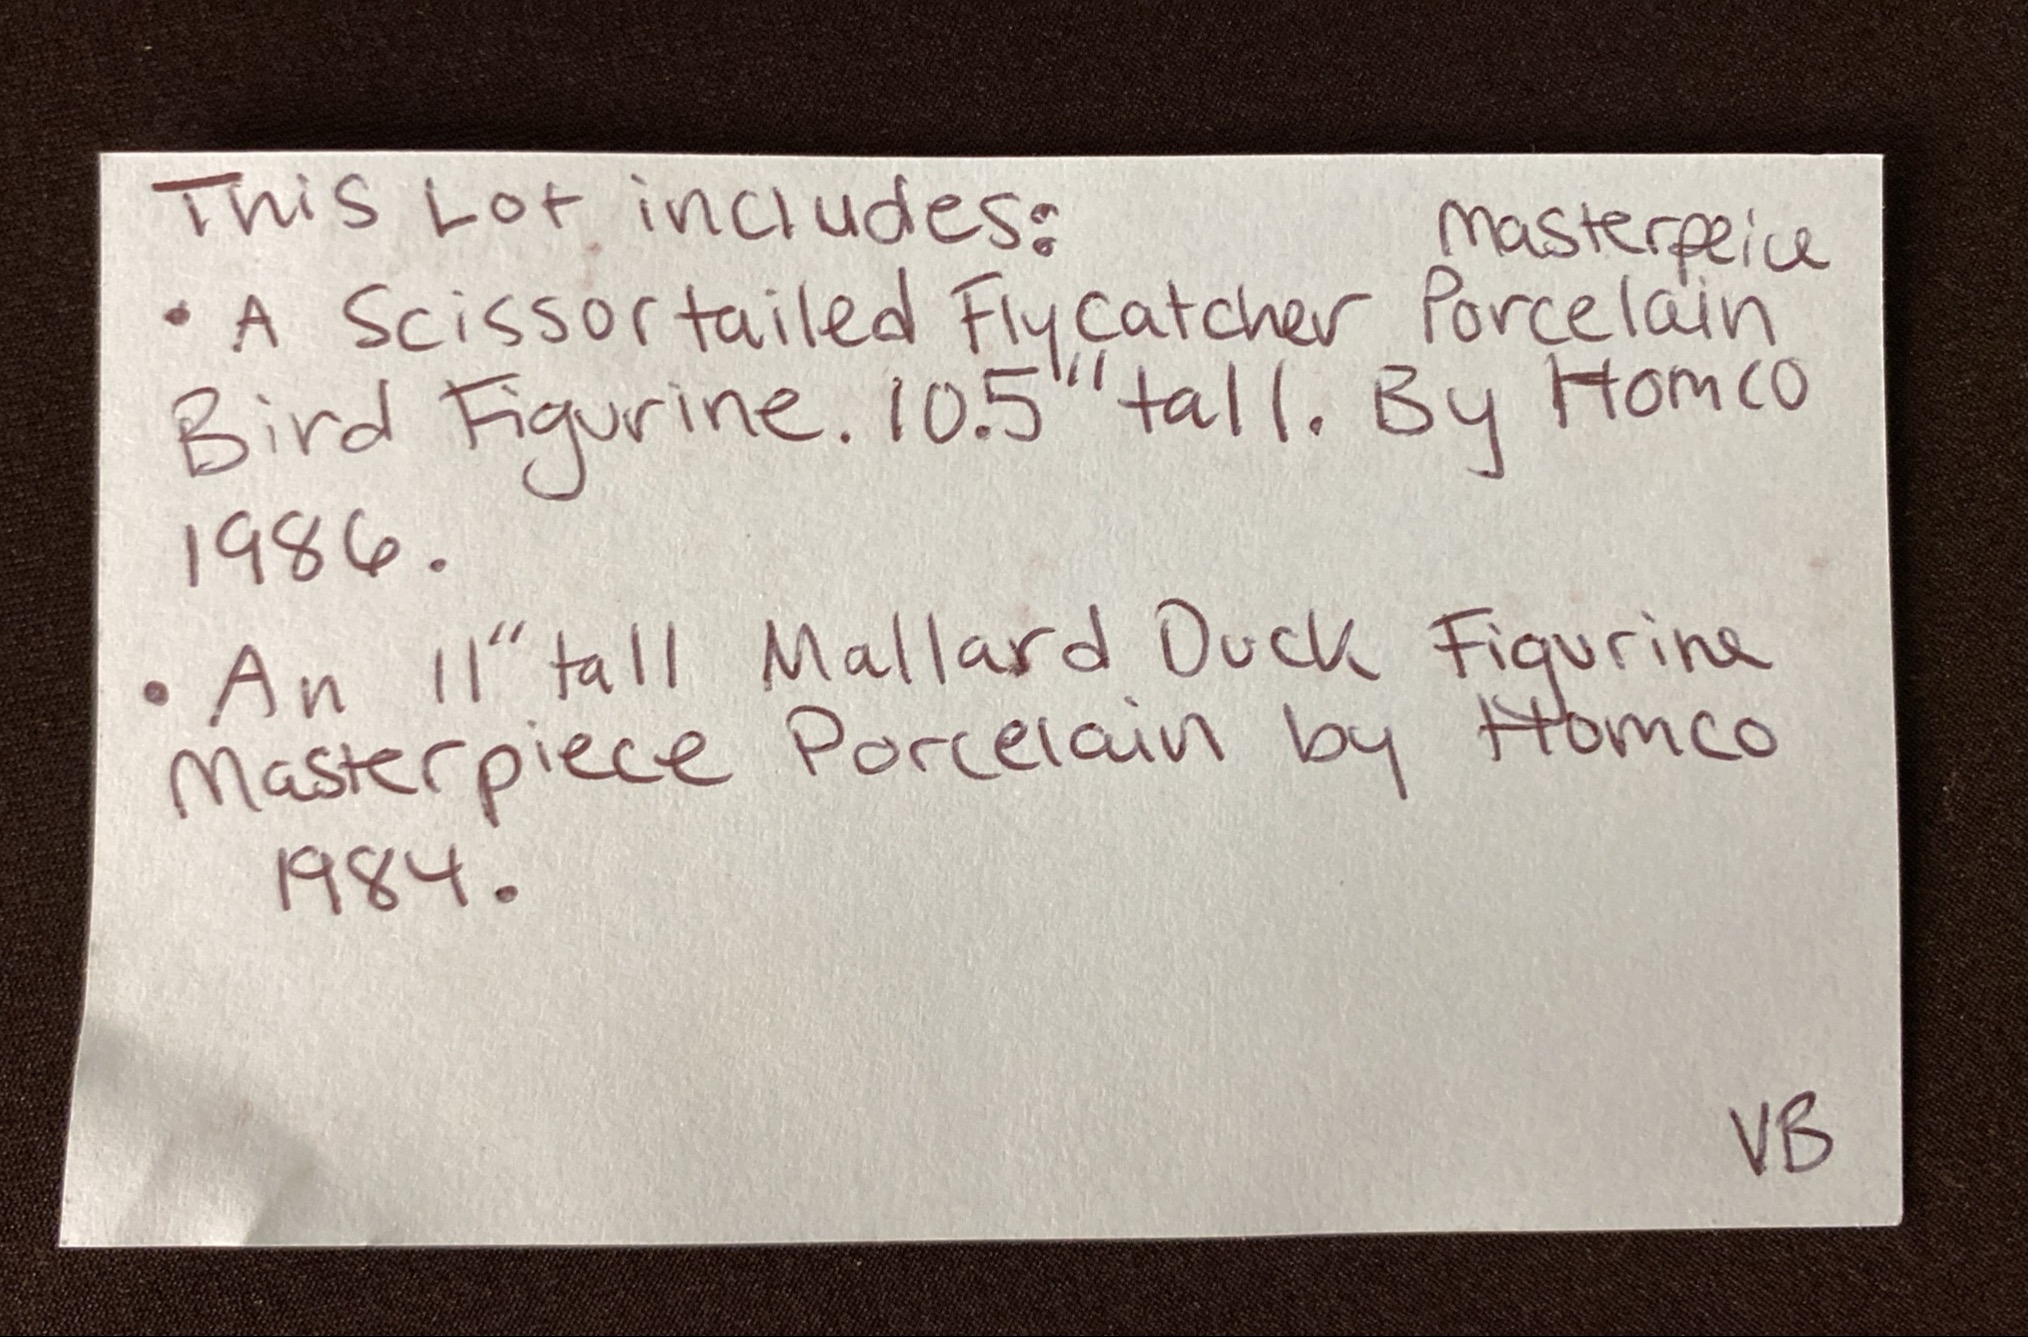 This Lot includes:
Masterpeice
• A Scissortailed Flycatcher Porcelain
Bird Figurine. 10.5" tall. By Homco
1986.
• An 11" tall Mallard Duck Figurine
Masterpiece Porcelain by Homco
1984.
VB